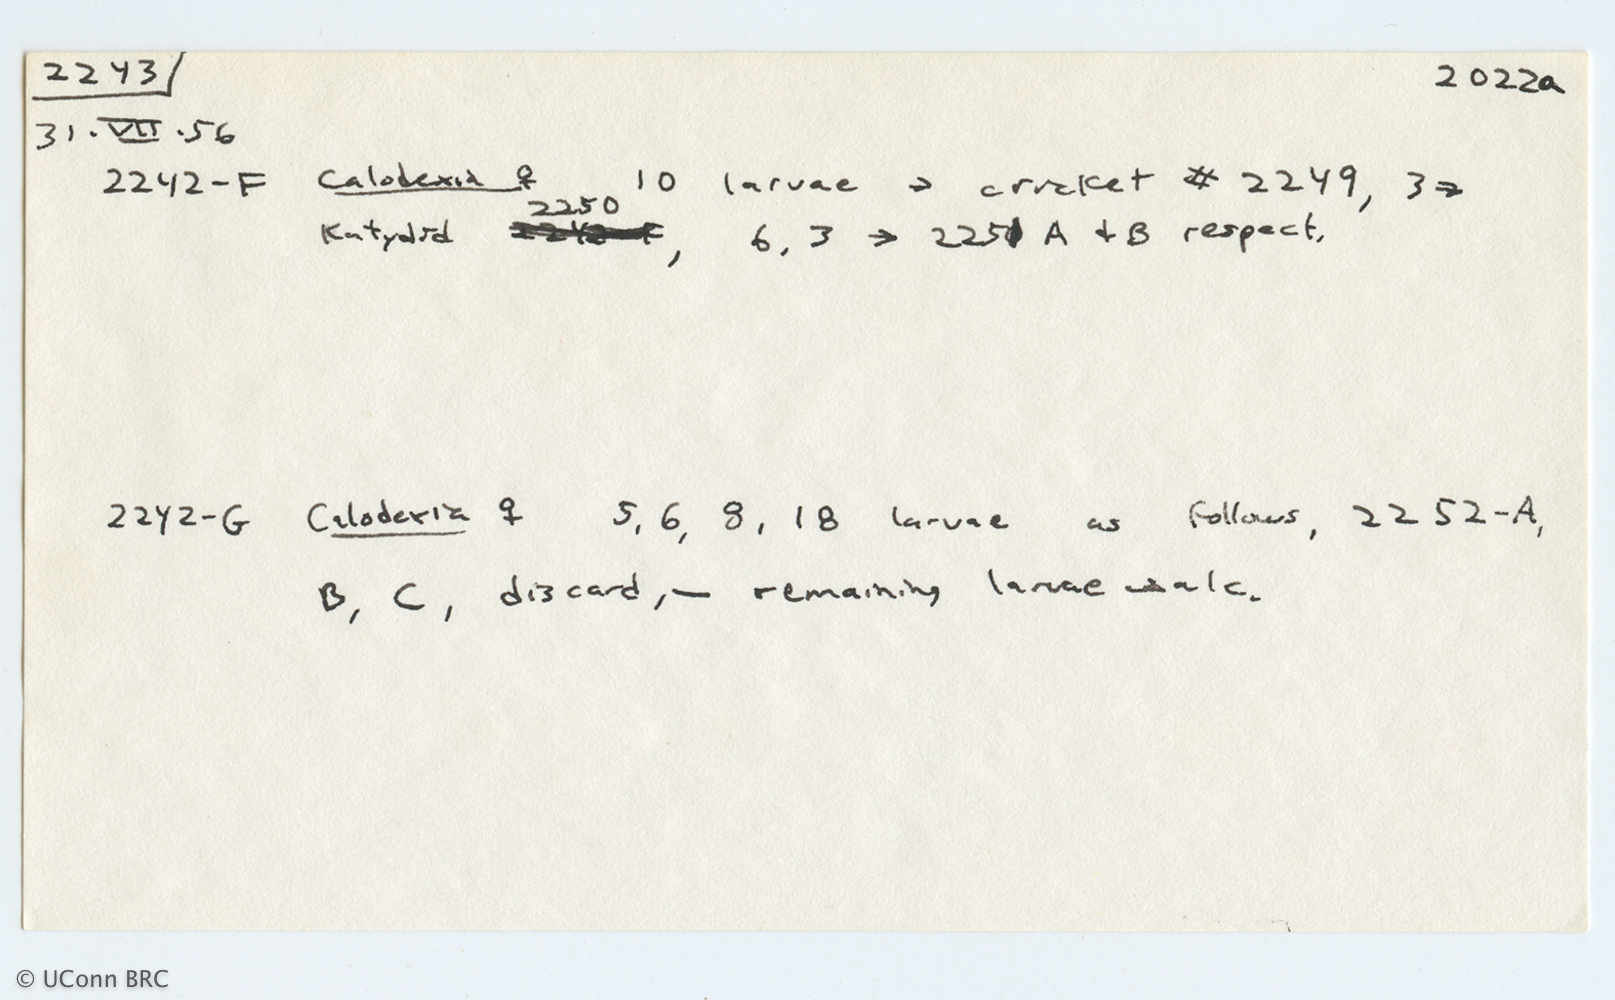 2243 2022a
31.VII.56
2242-F Calodexia ♀ 10 larvae → cricket # 2249, 3→
2250
Katydid 2242-F, 6, 3 → 2251 A + B respect.
2242-G Calodexia ♀ 5, 6, 8, 18 larvae as follows, 2252-A,
B, C, discard, — remaining larvae → alc.
© UConn BRC